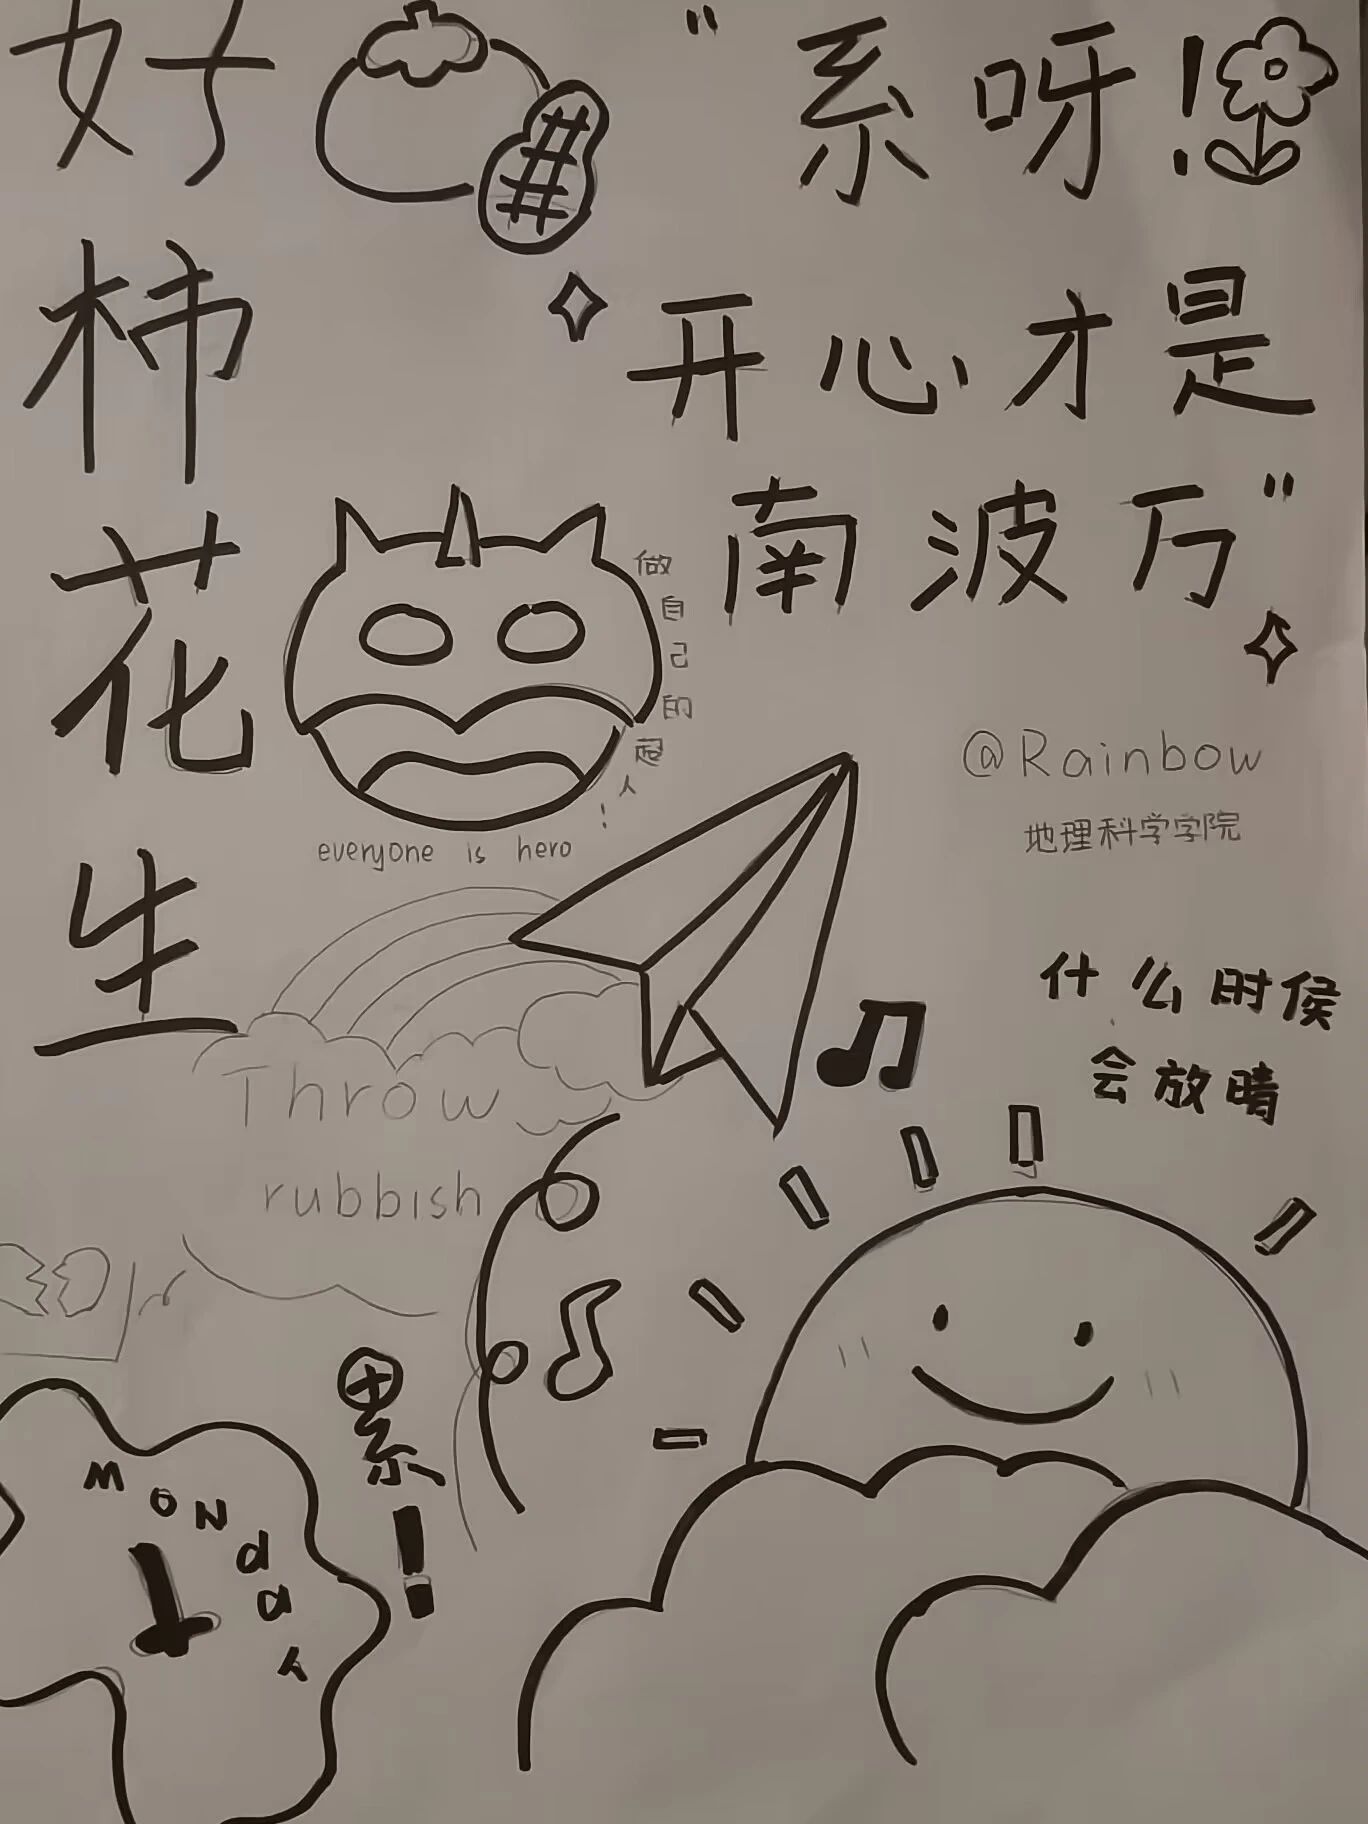 好柿花生
"系呀！
开心才是
南波万"
做自己的超人！
everyone is hero
@Rainbow
地理科学学院
什么时候
会放晴
Throw
rubbish
累！
MONdaY